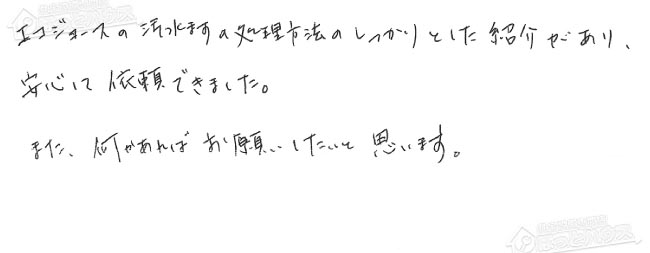 エコジョーズの汚水ますの処理方法のしっかりとした紹介があり、
安心して依頼できました。
また、何かあればお願いしたいと思います。